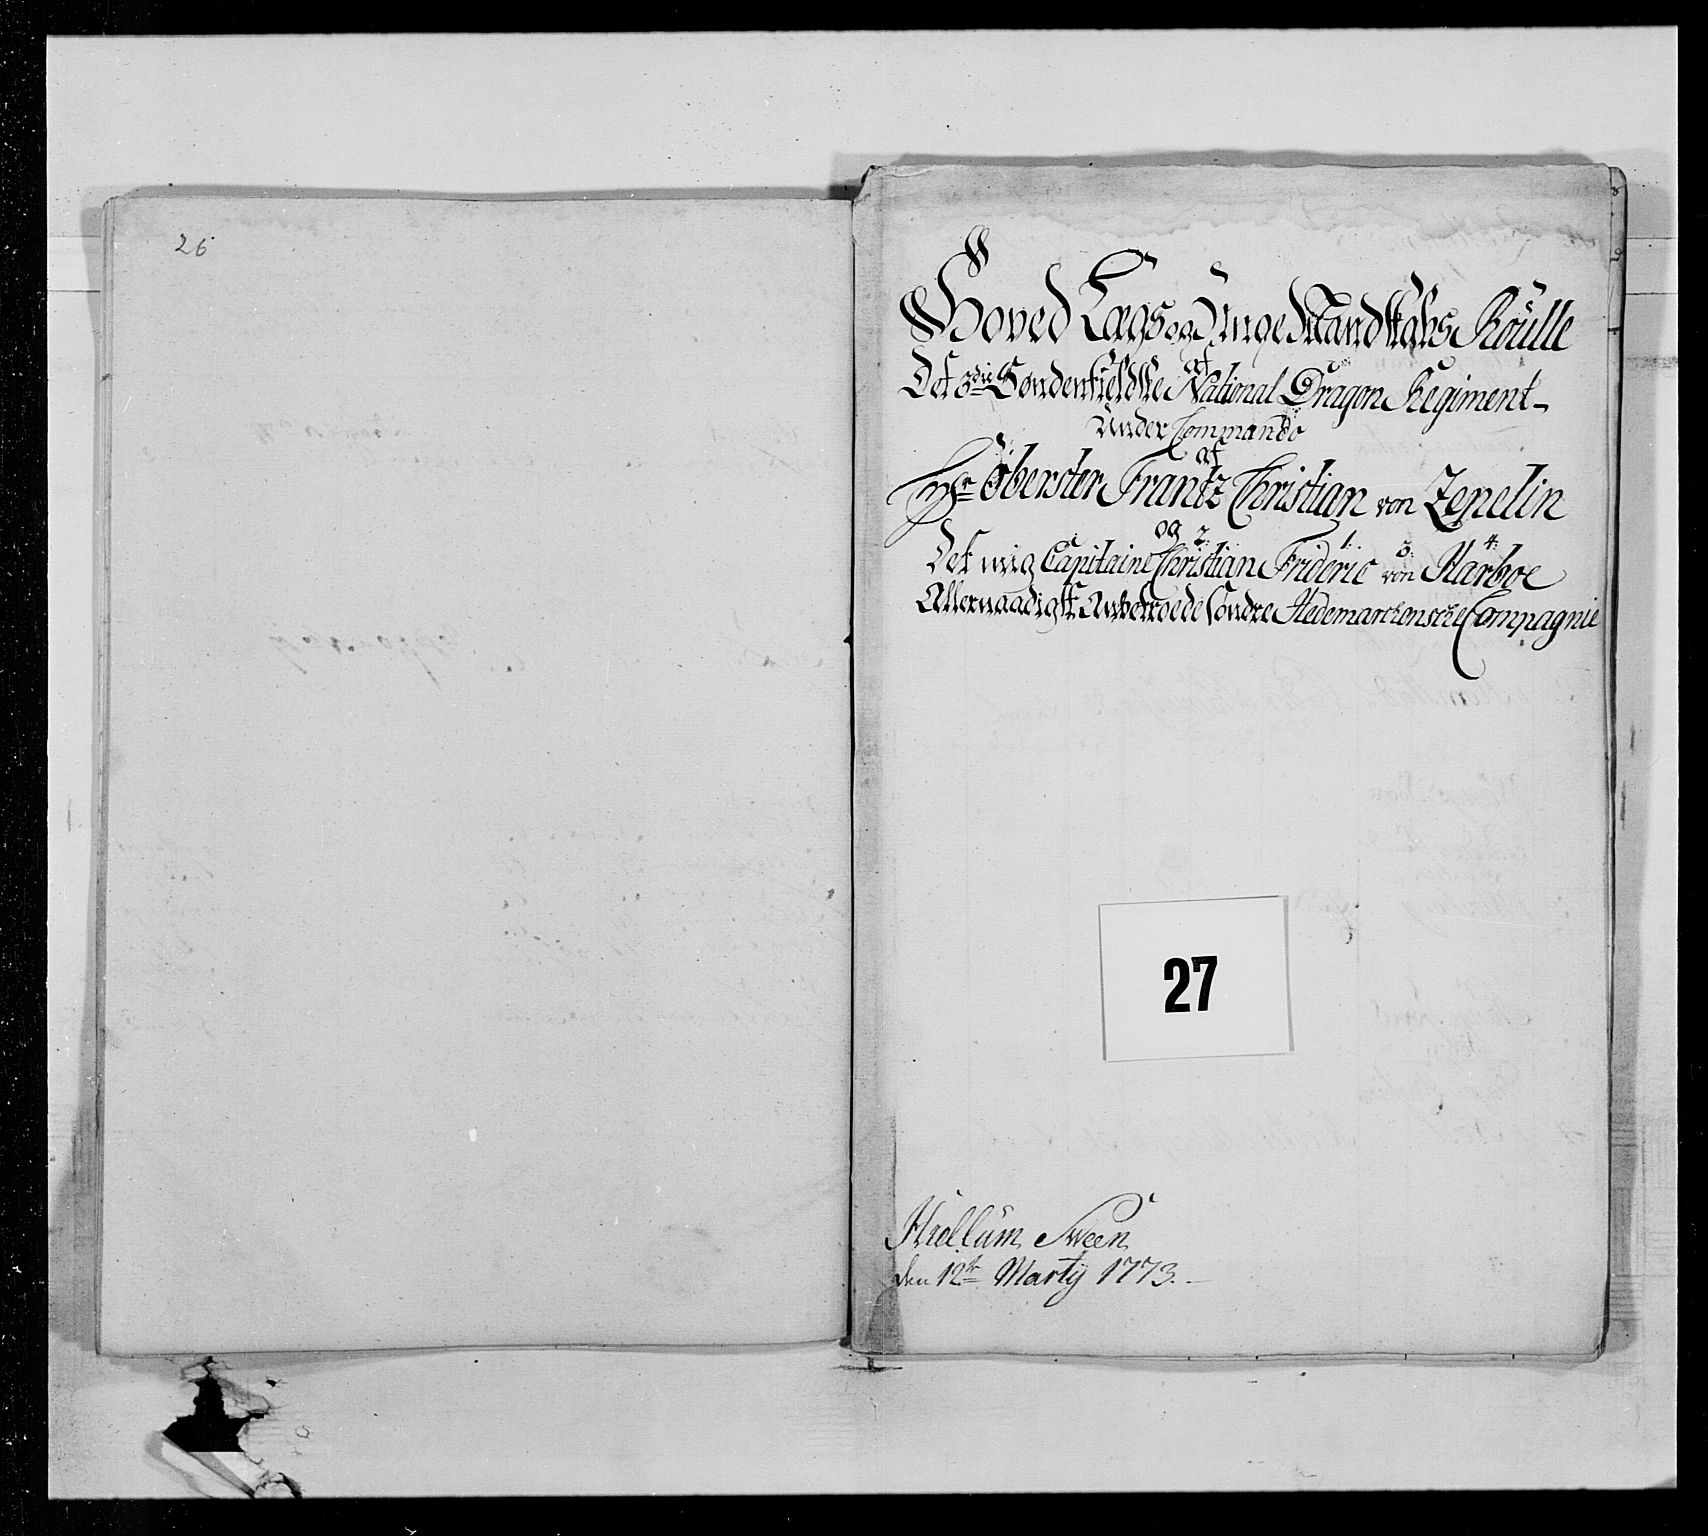 26
Hoved Lægs og Unge Mandskabs Roülle
af
Det 3die Søndenfieldske National Dragon Regiment
Under Commando
af
Hr Öberster Frantz Christian von Zepelin
og
2: 1: 3: 4:
Det mig Capitaine Christian Frideric von Harboe
Allernaadigst Anbetroede Söndre Hedemarckensche Compagnie
27
Hiellüm Sween
den 12te Marty 1773.